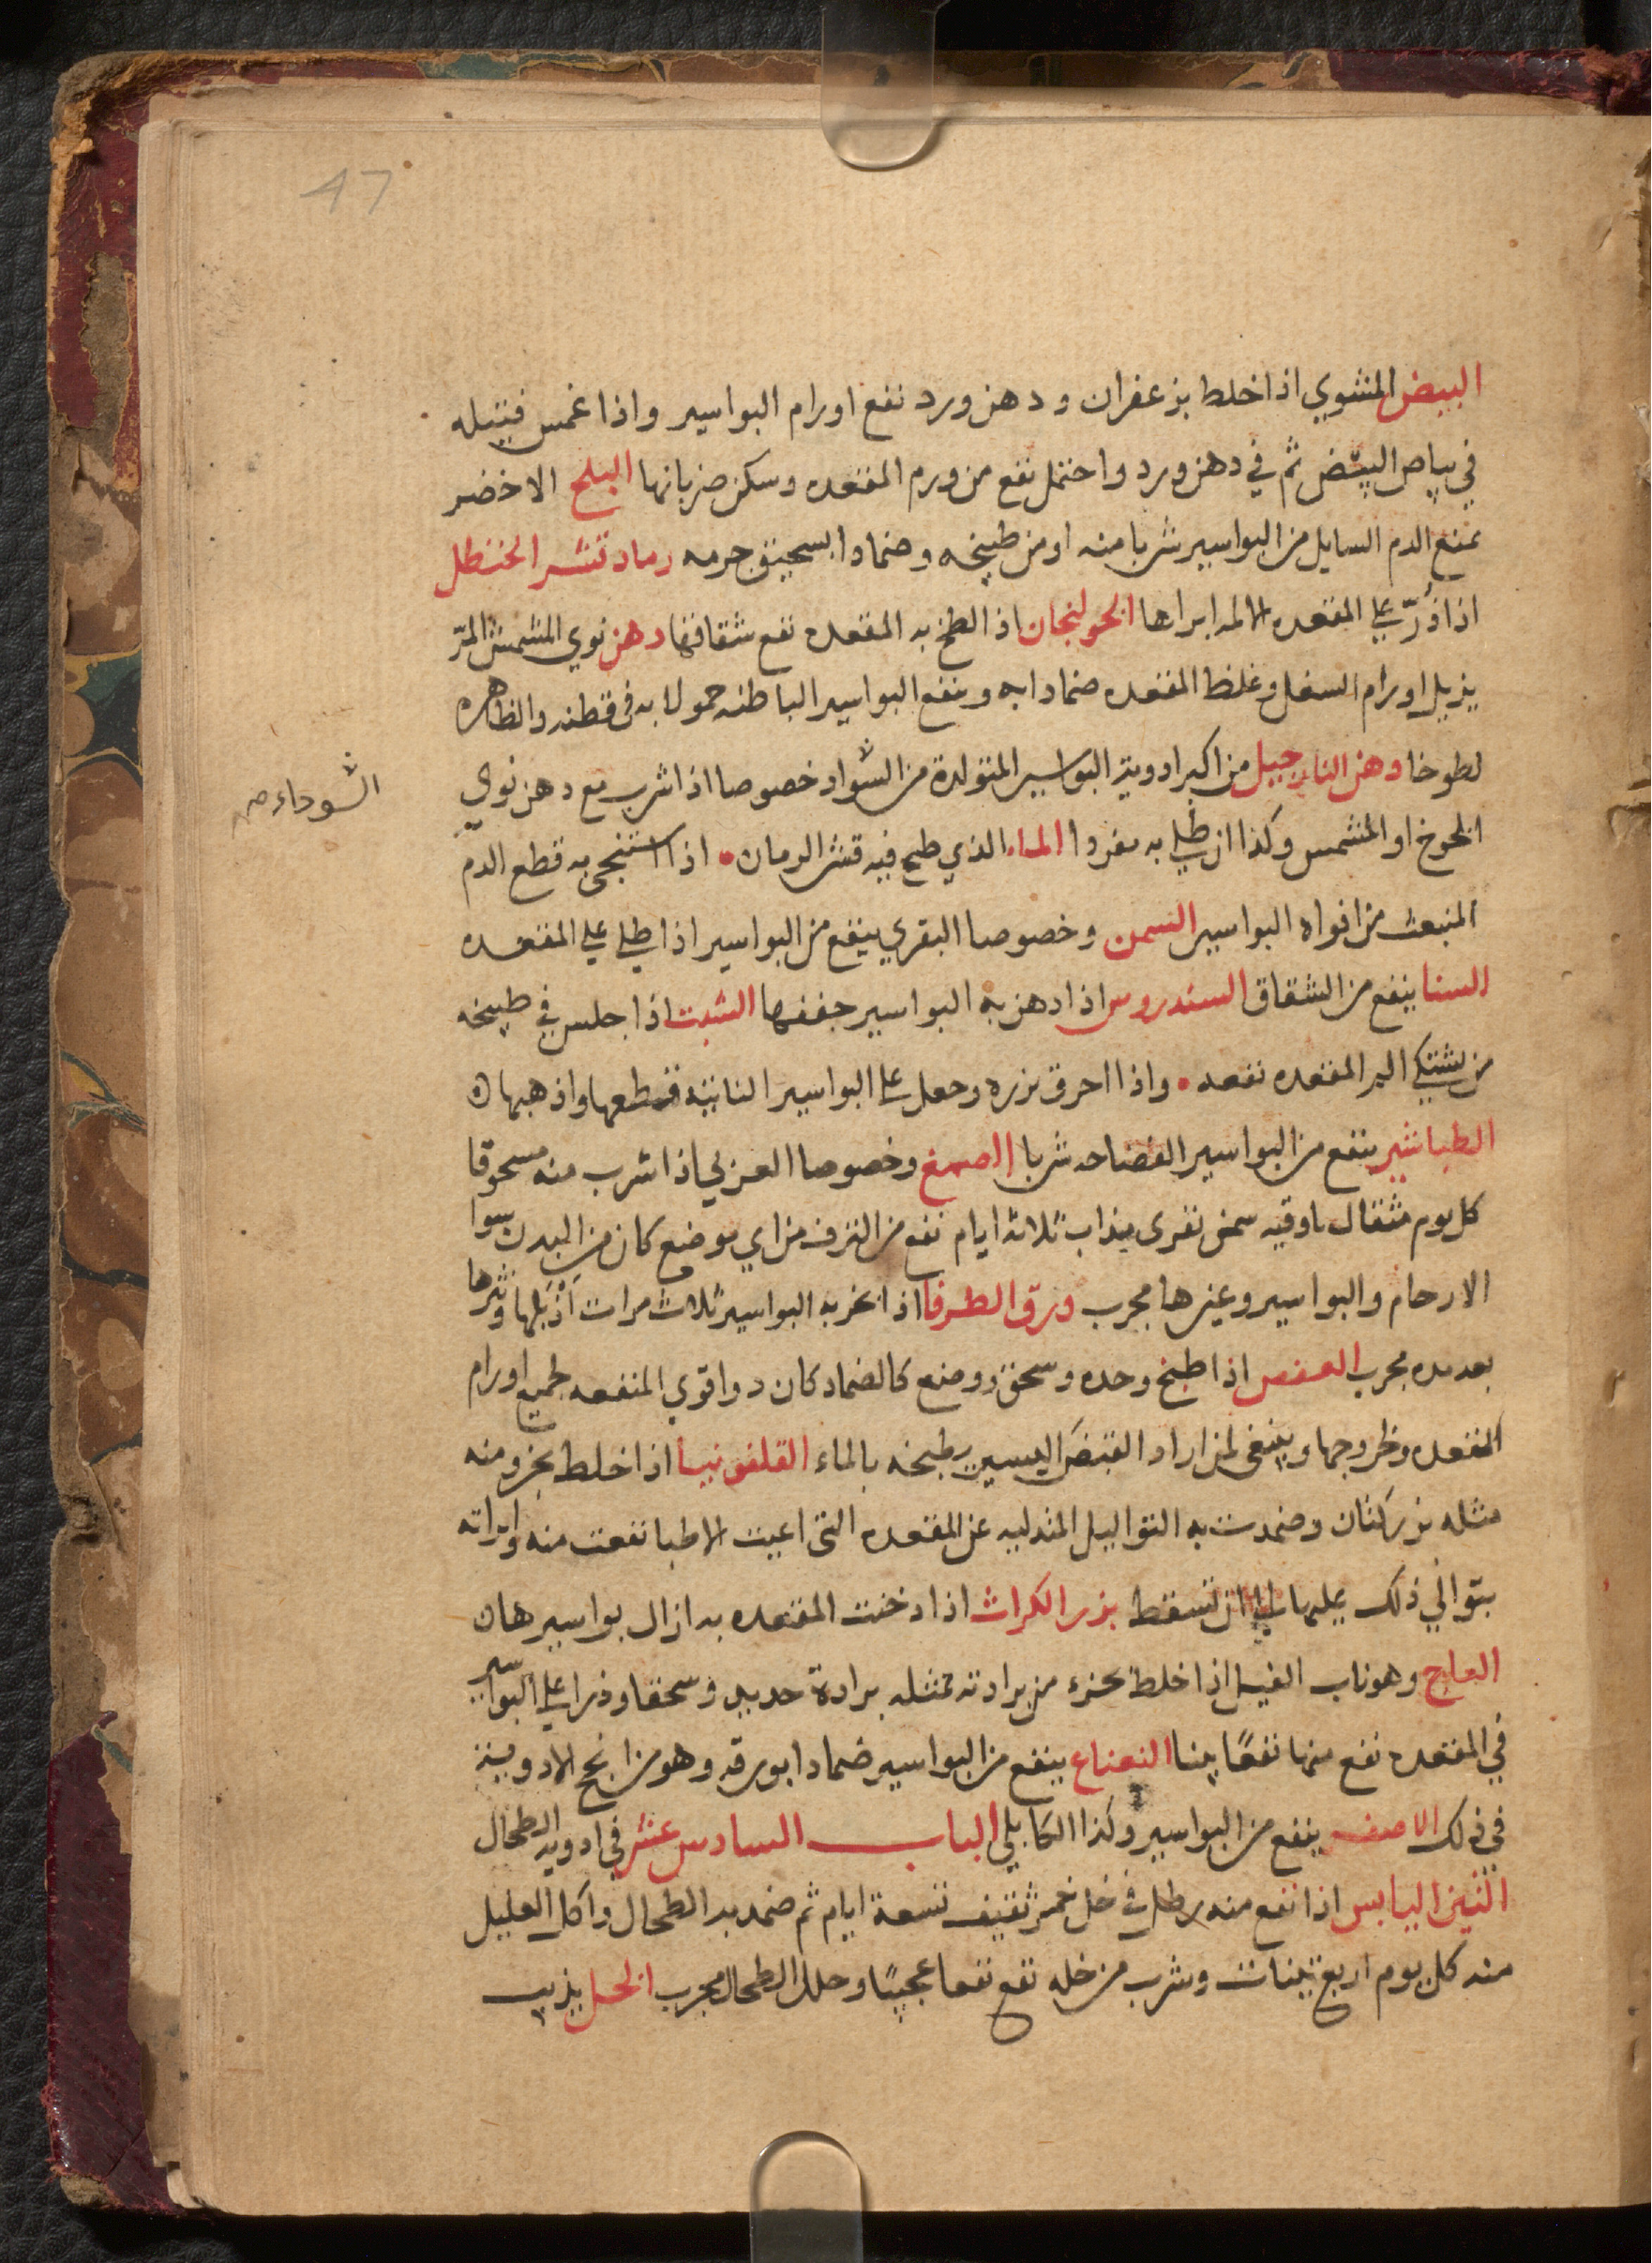 47
البيض المشوي اذا خلط بزعفران ودهن ورد نفع اورام البواسير واذا غمس فتيله
في بياض البيض ثم في دهن ورد واحتمل نفع من ورم المقعده وسكن ضربانها البلح الاخضر
يمنع الدم السايل من البواسير شربا منه او من طبيخه وضمادا بسحيق جرمه رماد قشر الحنظل
اذا ذُرّ علي المقعده الالمه ابراها الخولنجان اذا لطخ به المقعده نفع شقاقها دهن نوي المشمش المرّ
يزيل اورام السفل وغلظ المقعده ضمادا به وينفع البواسير الباطنه حمولا به في قطنه والظاهره
لطوخا دهن النارجيل من اكبر ادوية البواسير المتولدة من السواد خصوصا اذا شرب مع دهن نوي
السوداء صح
الخوخ او المشمش وكذا ان طلي به مفردا الماء الذي طبخ فيه قشر الرمان اذا استنجي به قطع الدم
المنبعث من افواه البواسير السمن وخصوصا البقري ينفع من البواسير اذا طلي علي المقعده
السنا ينفع من الشقاق السندروس اذا دهن به البواسير جففها الشبت اذا جلس في طبيخه
من يشتكي الم المقعده نفعه واذا احرق بزره وجعل علي البواسير النابته قطعها واذهبها
الطباشير ينفع من البواسير شربا الصمغ وخصوصا العربي اذا شرب منه مسحوقا
كل يوم مثقال باوقيه سمن بقري مذاب ثلاثة ايام نفع من النزف من اي موضع كان من البدن سوا
الارحام والبواسير وغيرها مجرب ورق الطرفا اذا بخر به البواسير ثلاث مرات اذبلها ونثرها
بعد مده مجرب العفص اذا طبخ وحده وسحق ووضع كالضماد كان دوا قوي المنفعه لجميع اورام
المقعده وخروجها وينبغي لمن اراد القبض اليسير يطبخه بالماء القلفونيا اذا خلط بجزو منه
مثله بزر كتان وضمدت به الثواليل المتدليه عن المقعده التي اعيت الاطبا نفعت منه وابراته
بتوالي ذلك عليها الي ان تسقط بزر الكراث اذا دخنت المقعده به ازال بواسيرها
العاج وهو ناب الفيل اذا خلط بجزء من برادته بمثله برادة حديد وسحقا وذرا علي البواسير
في المقعده نفع منها نفعًا بينا النعناع ينفع من البواسير ضمادا بورقه وهو من انجح الادوية
في ذلك الاصفر ينفع من البواسير وكذا الكابلي الباب السادس عشر في ادوية الطحال
التين اليابس اذا نقع منه رطل في خل خمر ثقيف تسعة ايام ثم ضمد به الطحال واكل العليل
منه كل يوم اربع تينات وشرب من خله نفع نفعا عجيبًا وحلل الطحال مجرب الخل يذيب